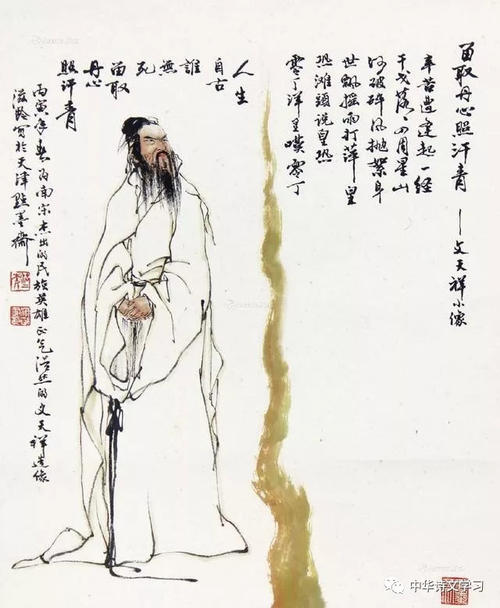 留取丹心照汗青
—文天祥小像
辛苦遭逢起一经
干戈落落四周星山
河破碎风抛絮身
世飘摇雨打萍皇
恐滩頭说皇恐
零丁洋里嘆零丁
人生
自古
誰
無
死
留取
丹心
照汗青
丙寅年春为南宋杰出的民族英雄正气浩然的文天祥造像
滋龄写於天津點墨齋
中华诗文学习